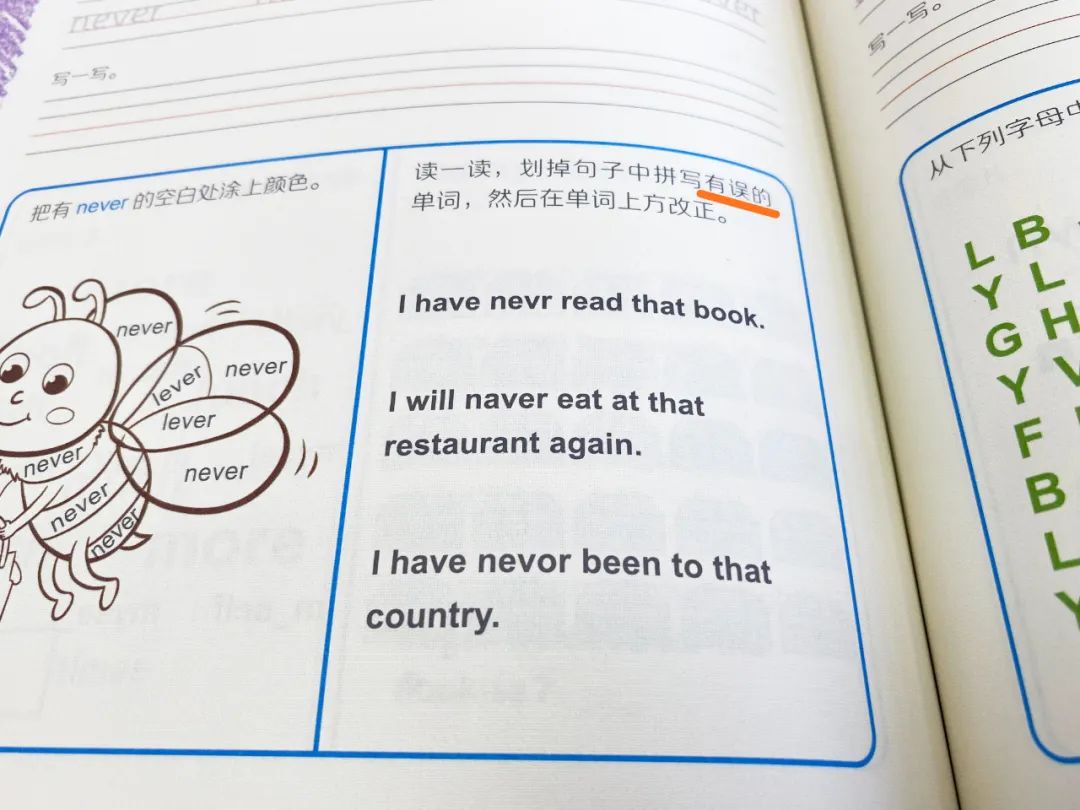 never
写一写。
把有 never 的空白处涂上颜色。
never
lever
never
lever
never
never
never
never
读一读，划掉句子中拼写有误的
单词，然后在单词上方改正。
I have nevr read that book.
I will naver eat at that
restaurant again.
I have nevor been to that
country.
写一写。
从下列字母中
L B
Y L
G H
Y V
F
B
L
Y